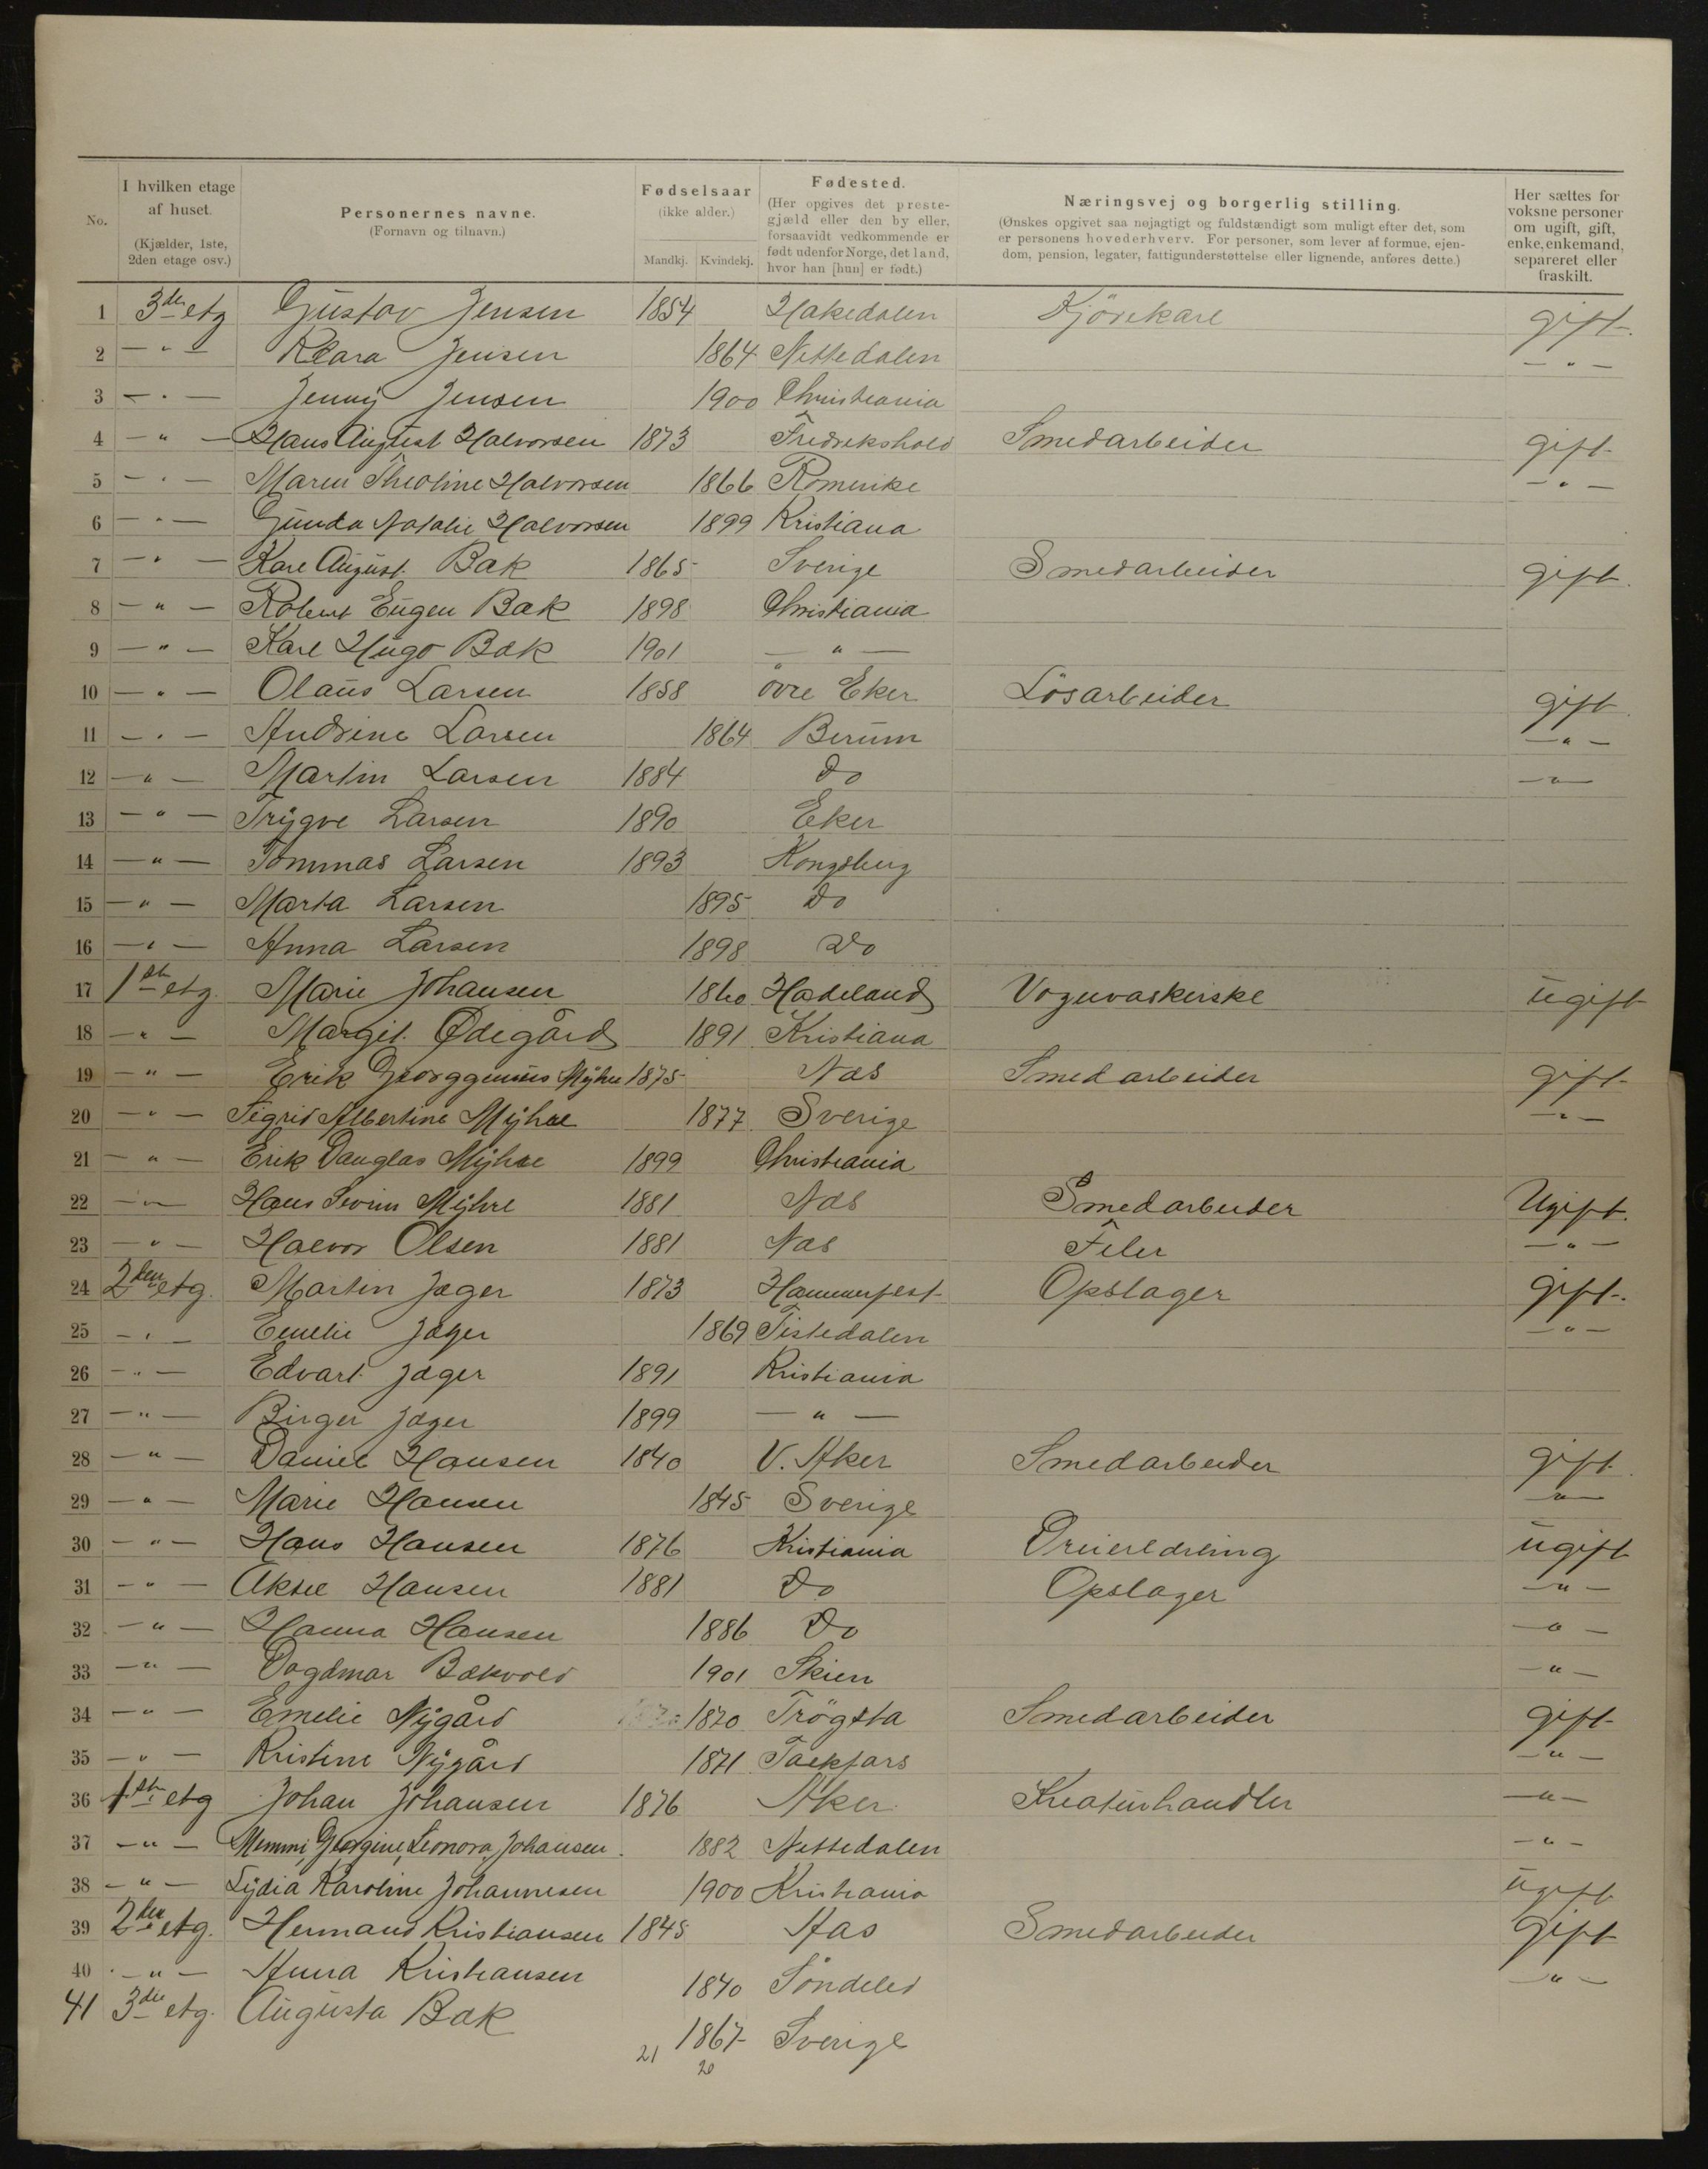 No.
I hvilken etage af huset. (Kjælder, 1ste, 2den etage osv.)
Personernes navne. (Fornavn og tilnavn.)
Fødselsaar (ikke alder.) Mandkj. Kvindekj.
Fødested. (Her opgives det prestegjæld eller den by eller, forsaavidt vedkommende er født udenfor Norge, det land, hvor han [hun] er født.)
Næringsvej og borgerlig stilling. (Ønskes opgivet saa nøjagtigt og fuldstændigt som muligt efter det, som er personens hovederhverv. For personer, som lever af formue, ejendom, pension, legater, fattigunderstøttelse eller lignende, anføres dette.)
Her sættes for voksne personer om ugift, gift, enke, enkemand, separeret eller fraskilt.
1 3de etg Gustav Jensen 1854 Hakedalen Kjörekarl gift
2 — " — Klara Jensen 1864 Nittedalen — " —
3 — " — Jenny Jensen 1900 Christiania
4 — " — Hans August Halvorsen 1873 Fredrikshald Smedarbeider gift
5 — " — Maren Theoline Halvorsen 1866 Romerike — " —
6 — " — Gunda Natalie Halvorsen 1899 Kristiana
7 — " — Karl August Bæk 1865 Sverige Smedarbeider gift
8 — " — Robert Eugen Bæk 1898 Christiania
9 — " — Karl Hugo Bæk 1901 — " —
10 — " — Olaus Larsen 1858 övre Eker Lösarbeider gift
11 — " — Andrine Larsen 1864 Berum — " —
12 — " — Martin Larsen 1884 Do — " —
13 — " — Trygve Larsen 1890 Eker
14 — " — Tommas Larsen 1893 Kongsberg
15 — " — Marta Larsen 1895 Do
16 — " — Anna Larsen 1898 Do
17 1ste etg. Marie Johansen 1860 Hadeland Vognvaskerske ugift
18 — " — Margit Ødegård 1891 Kristiana
19 — " — Erik Georggenius Myhre 1875 Næs Smedarbeider gift
20 — " — Sigrid Albertine Myhre 1877 Sverige — " —
21 — " — Erik Dauglas Myhre 1899 Christiania
22 — " — Hans Sevrin Myhre 1881 Næs Smedarbeider Ugift
23 — " — Halvor Olsen 1881 Næs Filer — " —
24 2den etg. Martin Jæger 1873 Hammerfest Opslager gift
25 — " — Emelie Jæger 1869 Tistedalen — " —
26 — " — Edvart Jæger 1891 Kristiania
27 — " — Birger Jæger 1899 — " —
28 — " — Daniel Hansen 1840 V. Aker Smedarbeider gift
29 — " — Marie Hansen 1845 Sverige — " —
30 — " — Hans Hansen 1876 Kristiania Dreierdreing ugift
31 — " — Aksel Hansen 1881 Do Opslager — " —
32 — " — Hanna Hansen 1886 Do — " —
33 — " — Dagdmar Bækvold 1901 Skien — " —
34 — " — Emelie Nygård 1870 Trögsta Smedarbeider gift
35 — " — Kristine Nygård 1871 — " —
36 1ste etg Johan Johansen 1876 Aker Kreaturhandler — " —
37 — " — Memmi, Georgine, Leonora, Johansen. 1882 Nittedalen — " —
38 — " — Lydia Karoline Johannesen 1900 Kristiania ugift
39 2den etg. Hermand Kristiansen 1845 Aas Smedarbeider gift
40 — " — Anna Kristiansen 1840 Söndeled — " —
41 3de etg. Augusta Bæk 1867 Sverige
21 20